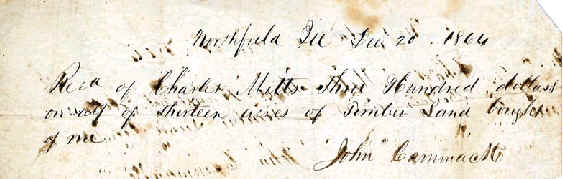 Northfield Ill Dec 20 1864
Recd of Charler Mitts three Hundred dollars
on of thirteen acres of Timber Land bought
of me
John Cammack